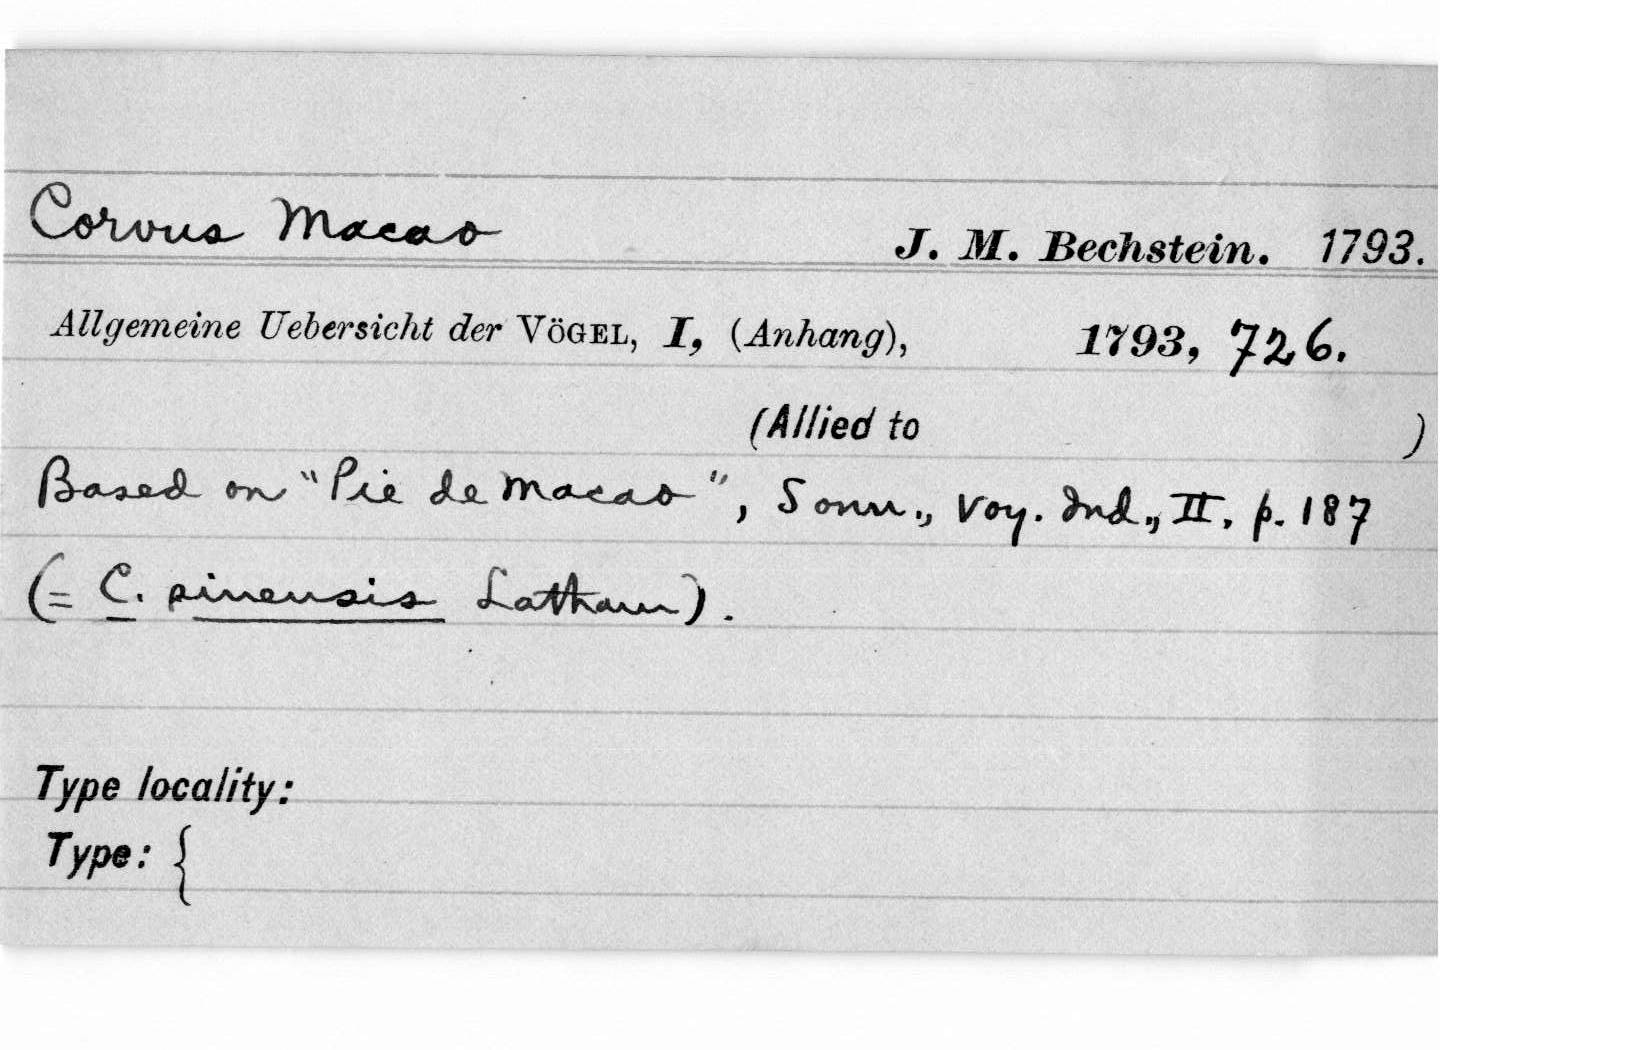 Corvus Macao J. M. Bechstein. 1793.
Allgemeine Uebersicht der VÖGEL, I, (Anhang), 1793, 726.
(Allied to )
Based on "Pie de Macao", Sonn., Voy. Ind., II, p. 187
(= C. sinensis Latham).
Type locality:
Type: {